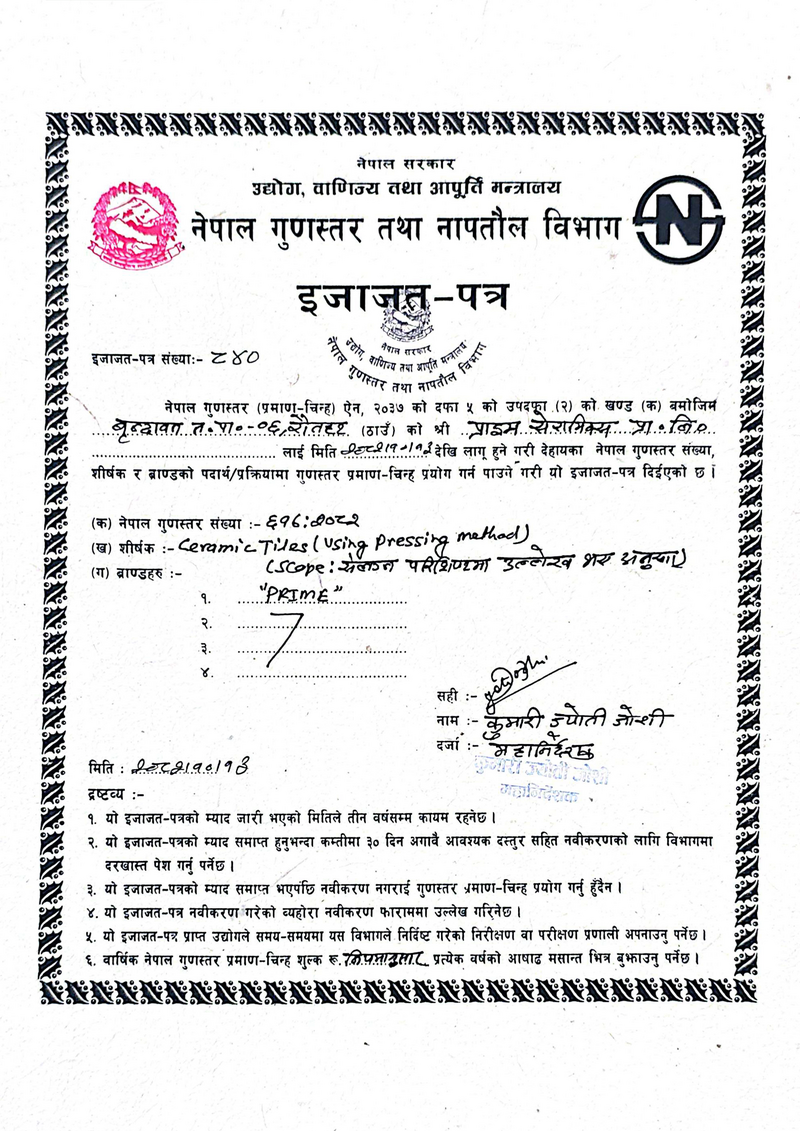 नेपाल सरकार
उद्योग, वाणिज्य तथा आपूर्ति मन्त्रालय
नेपाल गुणस्तर तथा नापतौल विभाग
N
इजाजत-पत्र
नेपाल सरकार
उद्योग, वाणिज्य तथा आपूर्ति मन्त्रालय
नेपाल गुणस्तर तथा नापतौल विभाग
इजाजत-पत्र संख्याः- ८४०
नेपाल गुणस्तर (प्रमाण-चिन्ह) ऐन, २०३७ को दफा ५ को उपदफा (२) को खण्ड (क) बमोजिम
वृन्दावन न.पा.-०६, रौतहट (ठाउँ) को श्री प्राइम सेरामिक्स प्रा.लि०
लाई मिति २०८२।१०।१३ देखि लागू हुने गरी देहायका नेपाल गुणस्तर संख्या,
शीर्षक र ब्राण्डको पदार्थ/प्रक्रियामा गुणस्तर प्रमाण-चिन्ह प्रयोग गर्न पाउने गरी यो इजाजत-पत्र दिईएको छ ।
(क) नेपाल गुणस्तर संख्या :- ६१६:२०८२
(ख) शीर्षक :- Ceramic Tiles (Using Pressing Method)
(Scope: संलग्न परिशिष्टमा उल्लेख भए अनुसार)
(ग) ब्राण्डहरु :-
१. "PRIME"
२.
३.
४.
सही :-
नाम :- कुमारी ज्योती जोशी
दर्जा :- महानिर्देशक
कुमारी ज्योती जोशी
महानिर्देशक
मिति : २०८२।१०।१३
द्रष्टव्य :-
१. यो इजाजत-पत्रको म्याद जारी भएको मितिले तीन वर्षसम्म कायम रहनेछ ।
२. यो इजाजत-पत्रको म्याद समाप्त हुनुभन्दा कम्तीमा ३० दिन अगावै आवश्यक दस्तुर सहित नवीकरणको लागि विभागमा
दरखास्त पेश गर्नु पर्नेछ ।
३. यो इजाजत-पत्रको म्याद समाप्त भएपछि नवीकरण नगराई गुणस्तर प्रमाण-चिन्ह प्रयोग गर्नु हुँदैन ।
४. यो इजाजत-पत्र नवीकरण गरेको व्यहोरा नवीकरण फाराममा उल्लेख गरिनेछ ।
५. यो इजाजत-पत्र प्राप्त उद्योगले समय-समयमा यस विभागले निर्दिष्ट गरेको निरीक्षण वा परीक्षण प्रणाली अपनाउनु पर्नेछ ।
६. वार्षिक नेपाल गुणस्तर प्रमाण-चिन्ह शुल्क रू. नियमानुसार प्रत्येक वर्षको आषाढ मसान्त भित्र बुझाउनु पर्नेछ ।